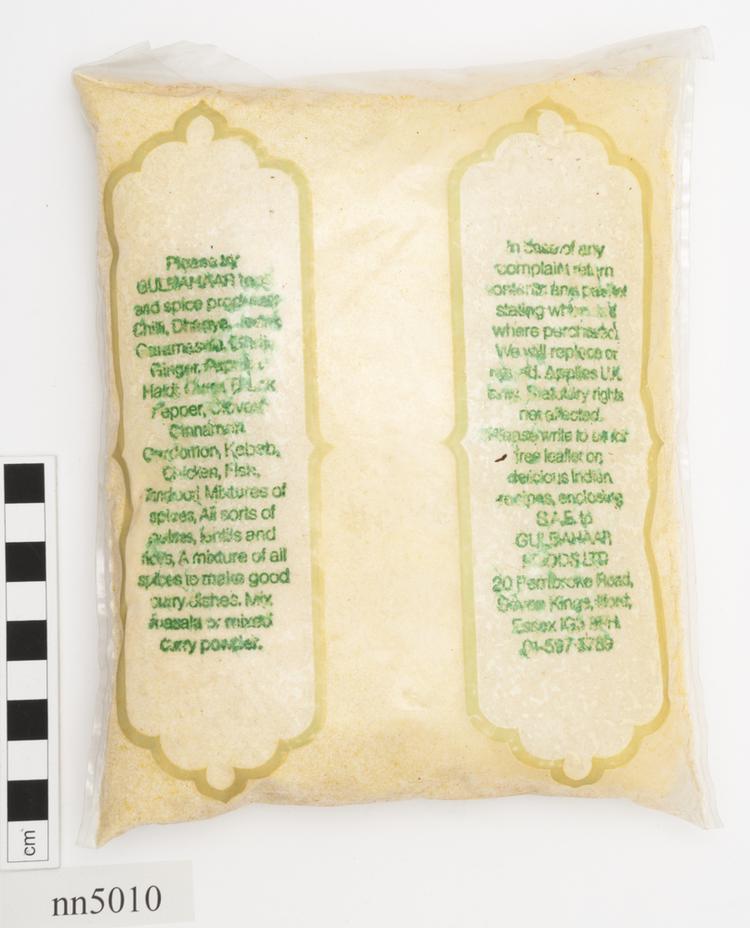 Please try
GULBAHAAR
and spice products
Chilli, Dhanya,
Garamasala,
Ginger,
Haldi, Black
Pepper, Cloves
Cinnamon
Cardomon, Kebab,
Chicken, Fish,
Tandoori Mixtures of
spices, All sorts of
pulses, lentils and
rices, A mixture of all
spices to make good
curry dishes. Mix
masala or mixed
curry powder.
In case of any
complaint return
contents and packet
stating when and
where purchased
We will replace or
Applies U.K.
only. Statutory rights
not affected.
Please write to us for
free leaflet on
delicious Indian
recipes, enclosing
S.A.E. to
GULBAHAAR
FOODS LTD
20 Pembroke Road,
Seven Kings, Ilford,
Essex IG3
01-597
cm
nn5010